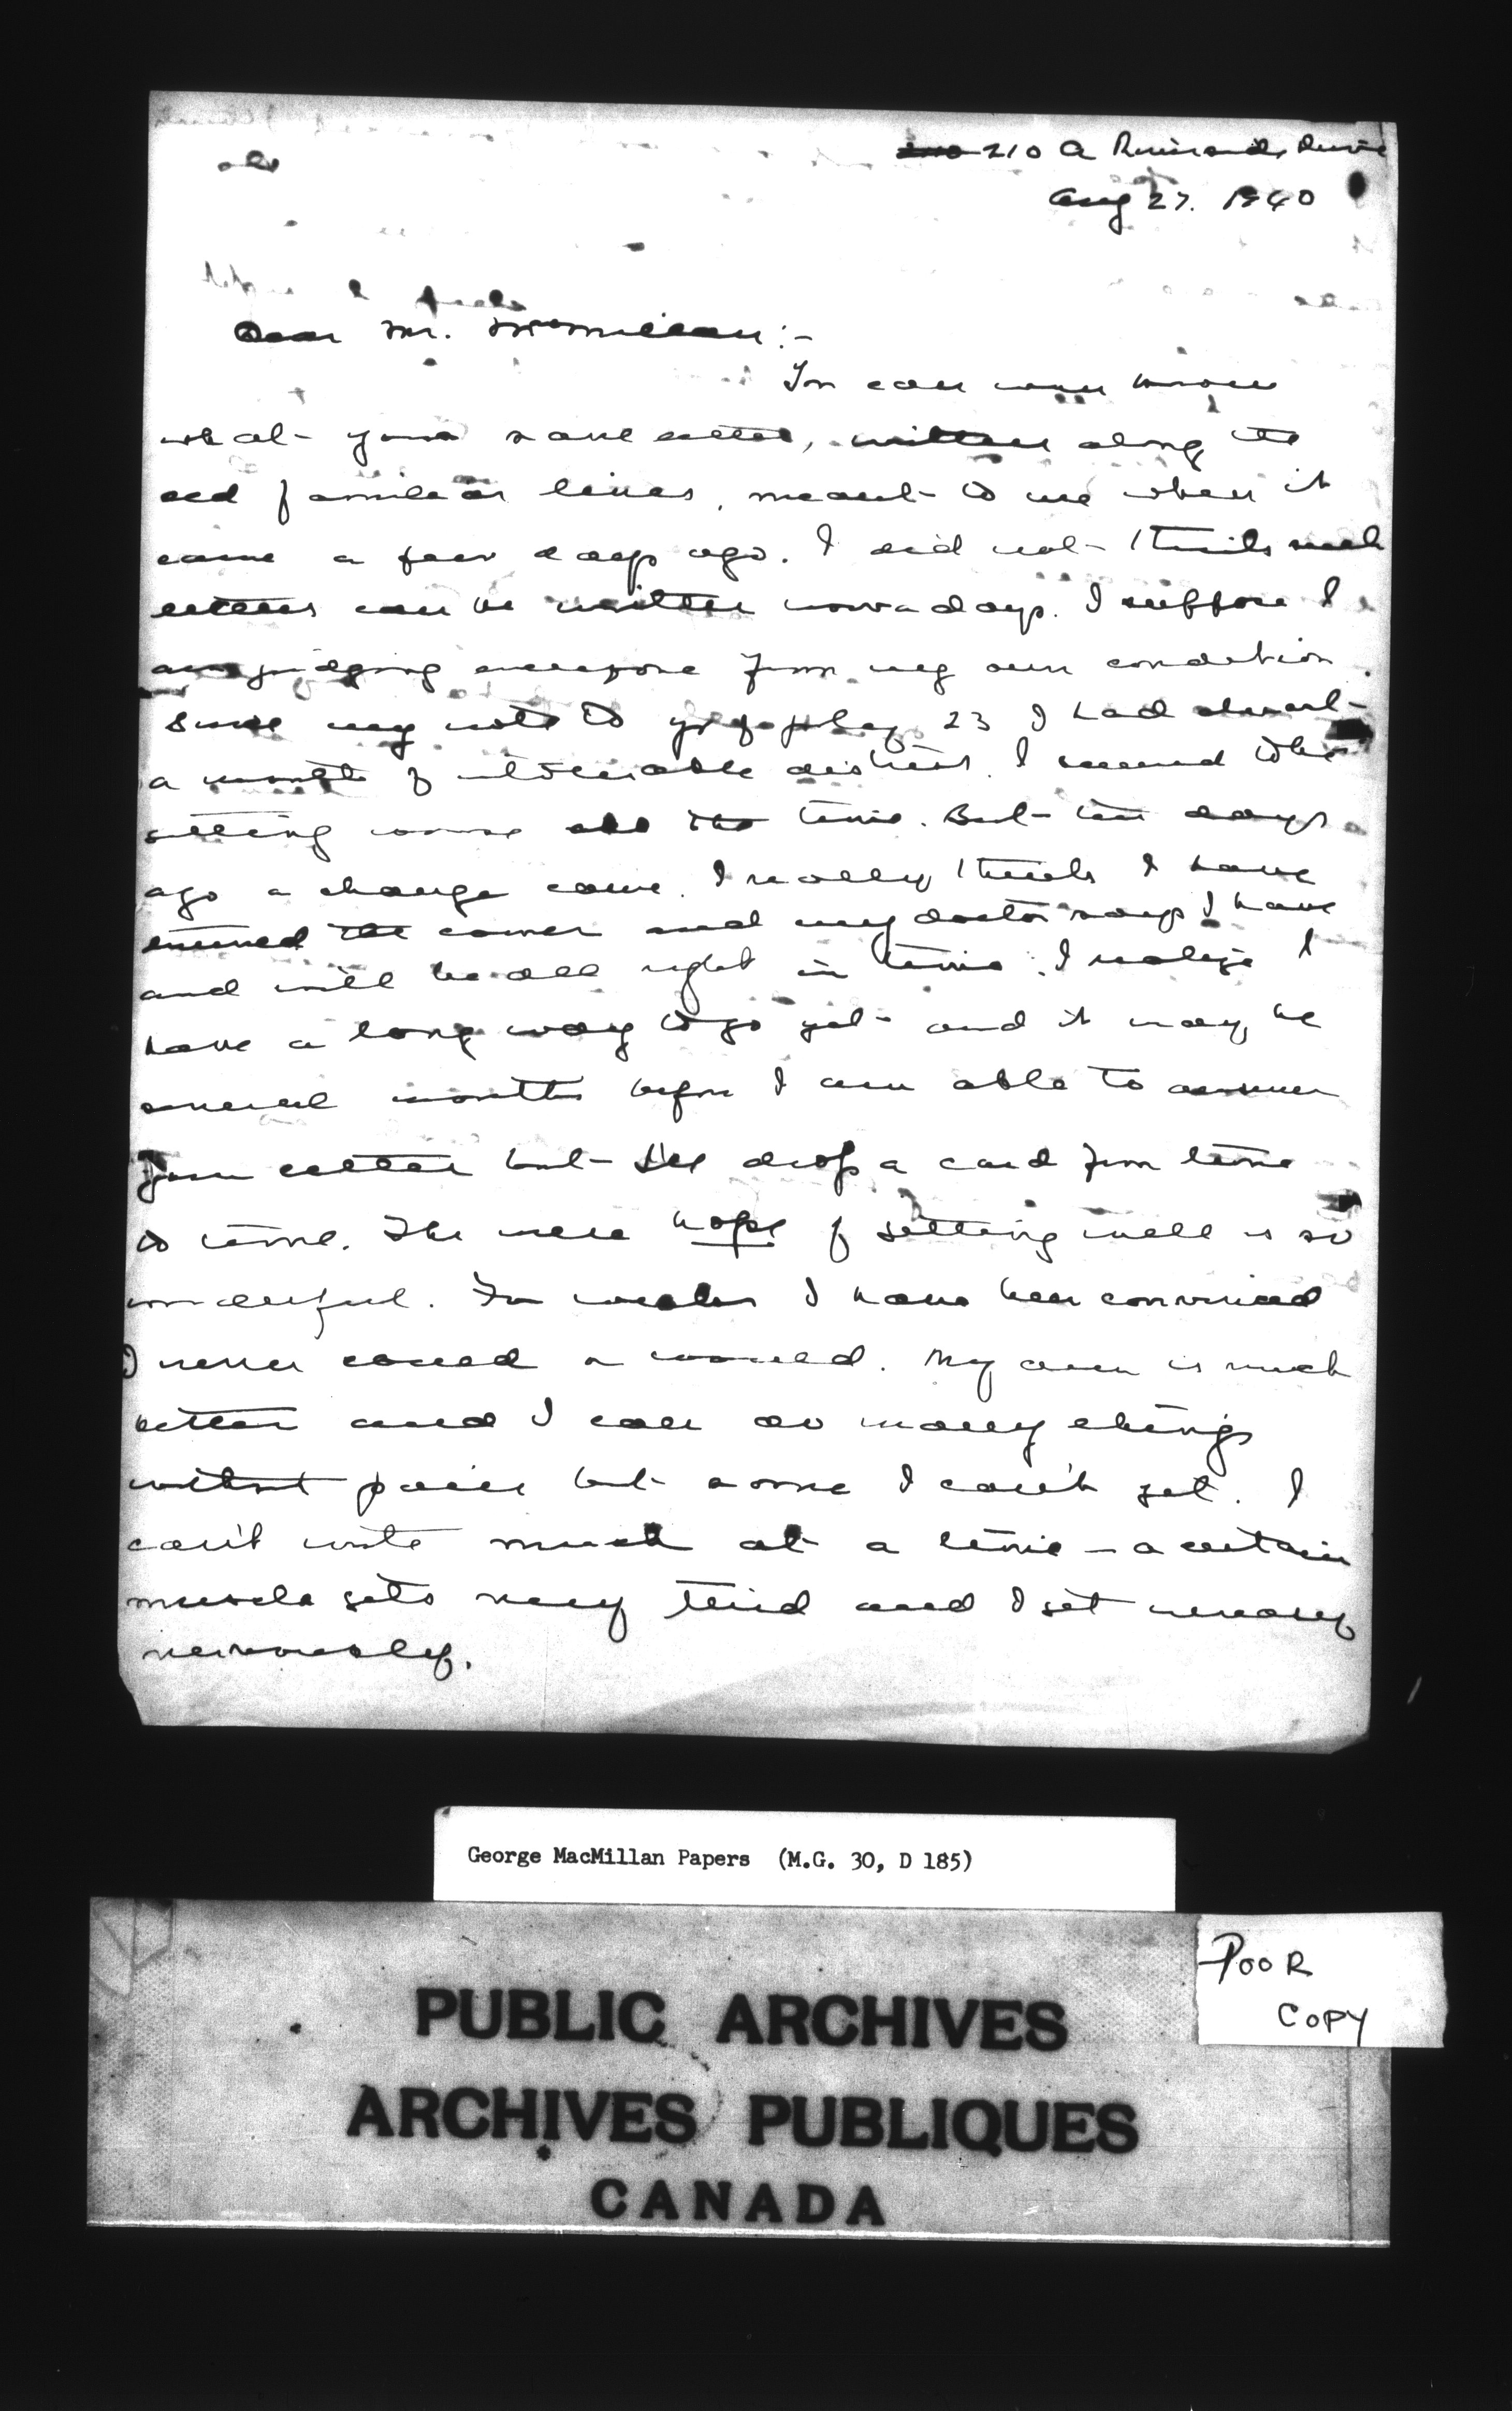 210 A Riverside Drive
Aug 27. 1940
Dear Mr. McMillan:-
You can never know
what your sane letter, written along the
old familiar lines, meant to me when it
came a few days ago. I did not think such
letters can be written nowadays. I suppose I
am judging everyone from my own condition.
Since my note to you of July 23 I had almost
a month of intolerable distress. I seemed to be
getting worse all the time. But ten days
ago a change came. I really think I have
turned the corner and my doctor says I have
and will be all right in time. I realize I
have a long way to go yet and it may be
several months before I am able to answer
your letter but I'll drop a card from time
to time. The mere hope of getting well is so
wonderful. For weeks I have been convinced
I never could or would. My arm is much
better and I can do many things
without pain but some I can't yet. I
can't write much at a time - a certain
muscle gets very tired and I get uneasy
nervously.
George MacMillan Papers (M.G. 30, D 185)
POOR
COPY
PUBLIC ARCHIVES
ARCHIVES PUBLIQUES
CANADA